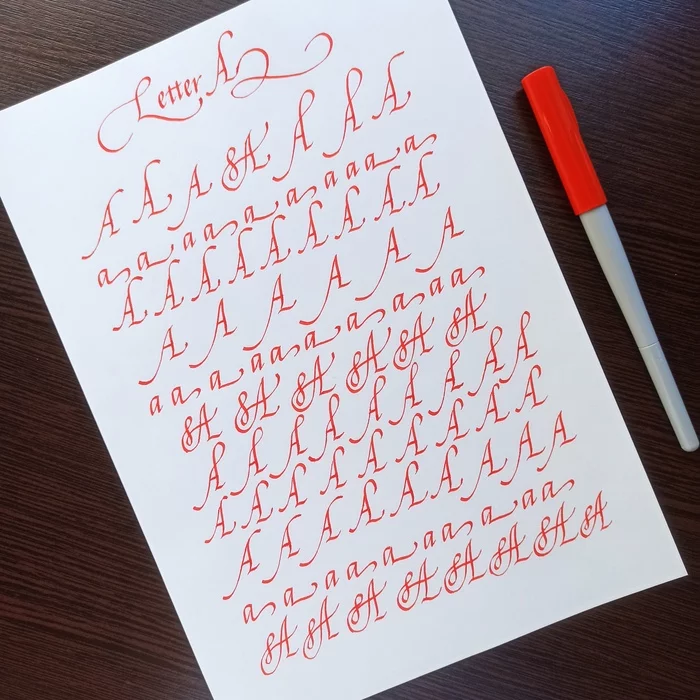 Letter A
A A A A A A A
a a a a a a a a a a
A A A A A A A A A
A A A A A A
a a a a a a a a a a a
A A A A A A
A A A A A A A A A
A A A A A A A A A
A A A A A A A A A
a a a a a a a a a a
A A A A A A A A